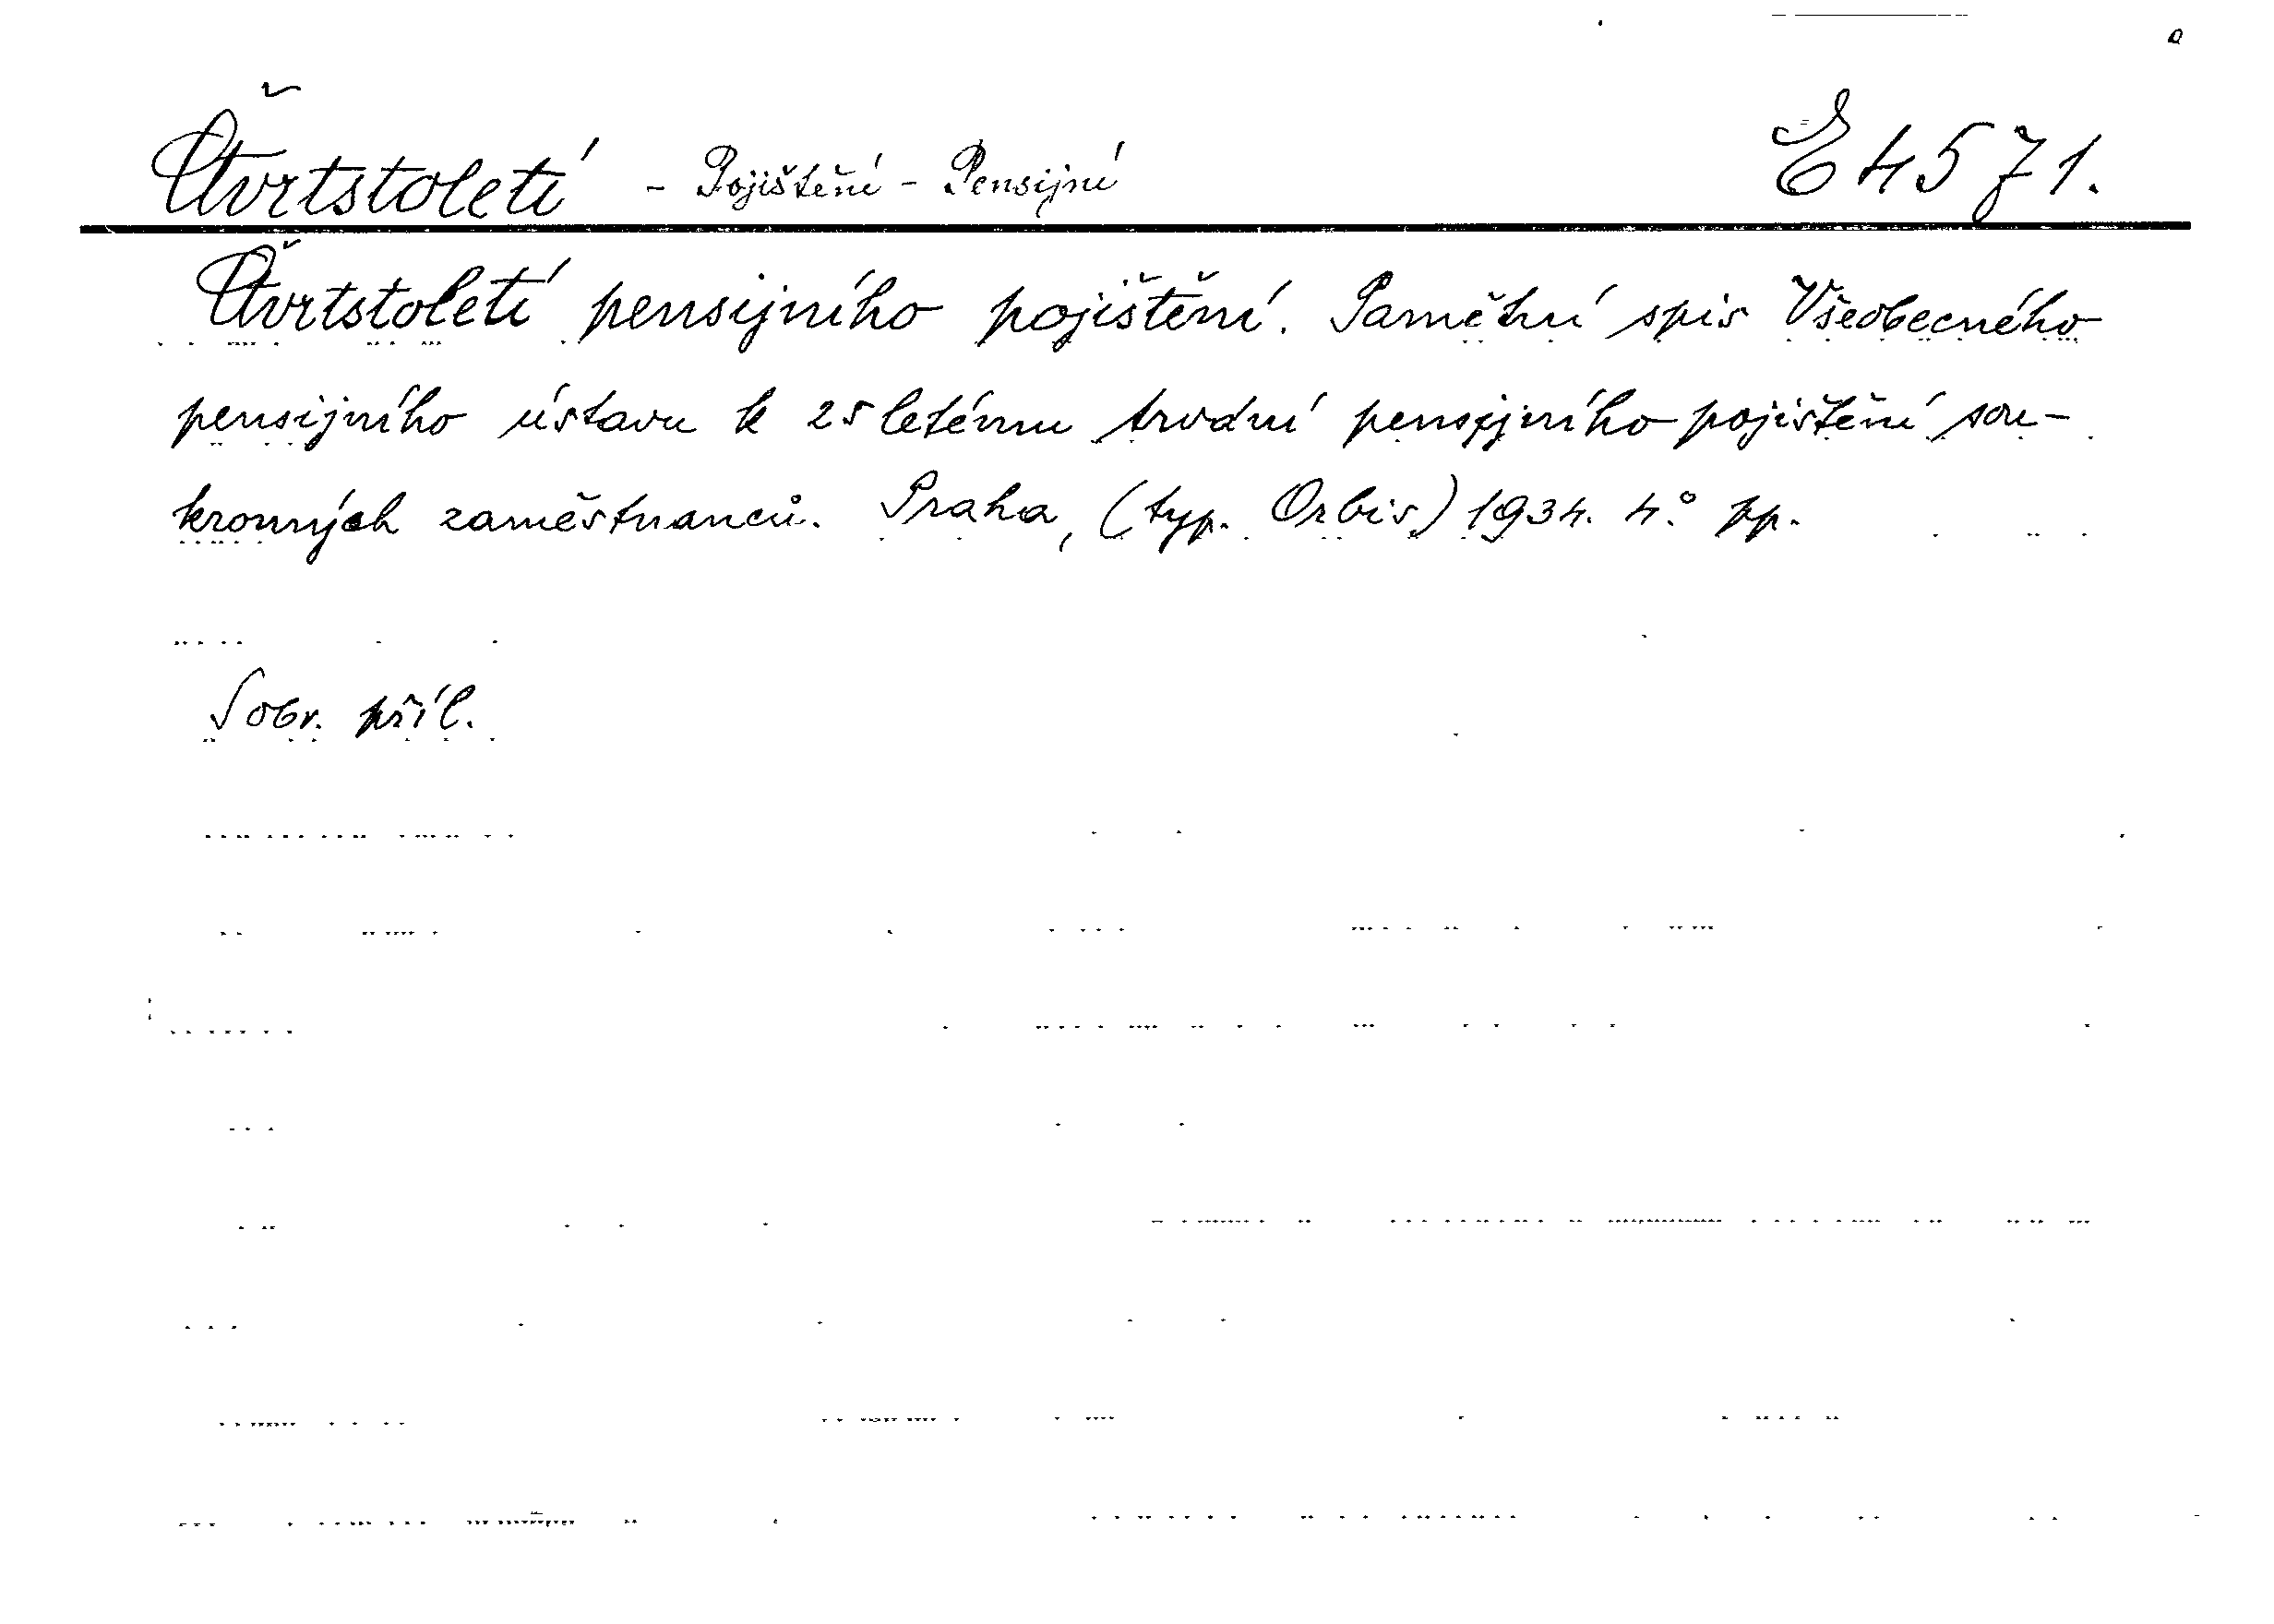 Čtvrtstoletí - Pojištění - Pensijní E 4571.
Čtvrtstoletí pensijního pojištění. Pamětní spis Všeobecného
pensijního ústavu k 25letému trvání pensijního pojištění sou-
kromých zaměstnanců. Praha, (typ. Orbis) 1934. 4.° pp.
S obr. příl.